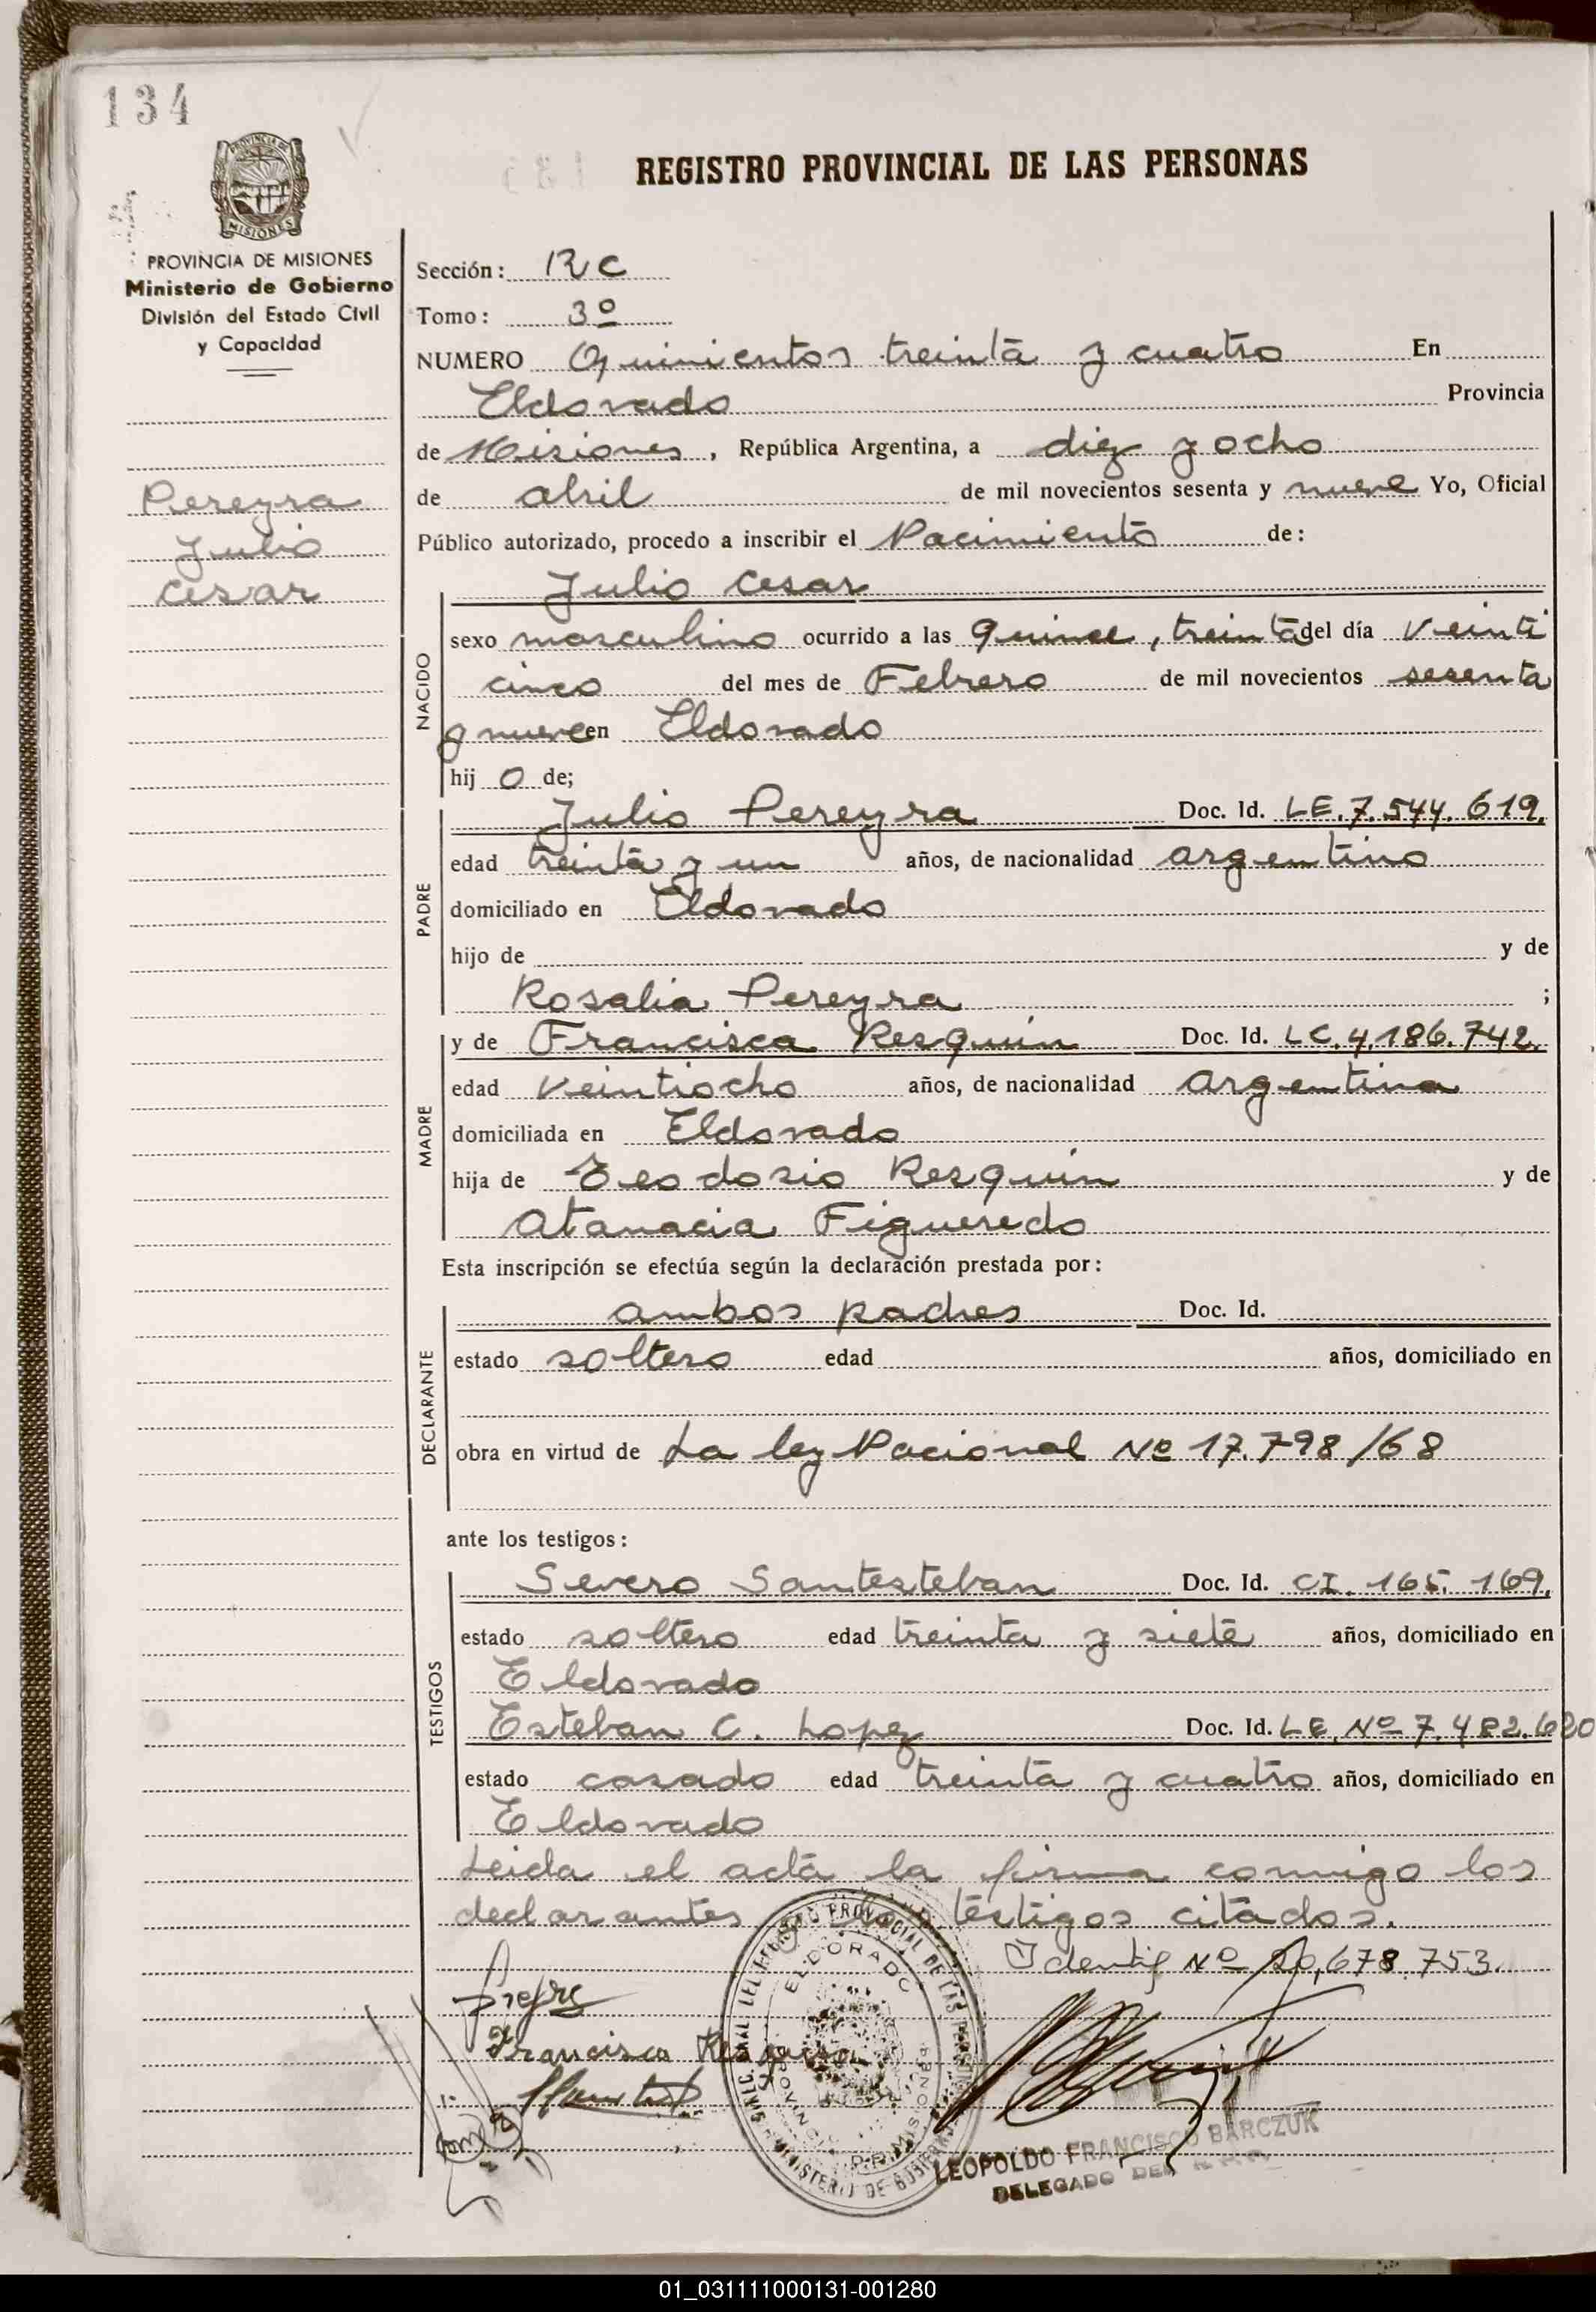 134
REGISTRO PROVINCIAL DE LAS PERSONAS
PROVINCIA DE
MISIONES
PROVINCIA DE MISIONES
Ministerio de Gobierno
División del Estado Civil
y Capacidad
Pereyra
Julio
Cesar
Sección: RC
Tomo: 3º
NUMERO Quinientos treinta y cuatro En
Eldorado Provincia
de Misiones, República Argentina, a diez y ocho
de abril de mil novecientos sesenta y nueve Yo, Oficial
Público autorizado, procedo a inscribir el Nacimiento de:
NACIDO
Julio Cesar
sexo masculino ocurrido a las quince, treinta del día veinti
cinco del mes de Febrero de mil novecientos sesenta
y nueve en Eldorado
hij o de;
PADRE
Julio Pereyra Doc. Id. LE. 7.544.619.
edad treinta y un años, de nacionalidad argentino
domiciliado en Eldorado
hijo de y de
Rosalia Pereyra ;
MADRE
y de Francisca Resquin Doc. Id. LC. 4.186.742.
edad veintiocho años, de nacionalidad argentina
domiciliada en Eldorado
hija de Teodosio Resquin y de
Atanacia Figueredo
Esta inscripción se efectúa según la declaración prestada por:
DECLARANTE
ambos padres Doc. Id.
estado soltero edad años, domiciliado en
obra en virtud de La ley Nacional Nº 17.798/68
ante los testigos:
TESTIGOS
Severo Santesteban Doc. Id. CI. 165.169.
estado soltero edad treinta y siete años, domiciliado en
Eldorado
Esteban C. Lopez Doc. Id. LE. Nº 7.482.620
estado casado edad treinta y cuatro años, domiciliado en
Eldorado
Leida el acta la firma conmigo los
declarantes y los testigos citados.
Identif Nº 20,678.753.
Francisca Resquin
REGISTRO PROVINCIAL DE LAS
ELDORADO
MINISTERIO DE GOBIERNO
LEOPOLDO FRANCISCO BARCZUK
DELEGADO DEL
01_031111000131-001280